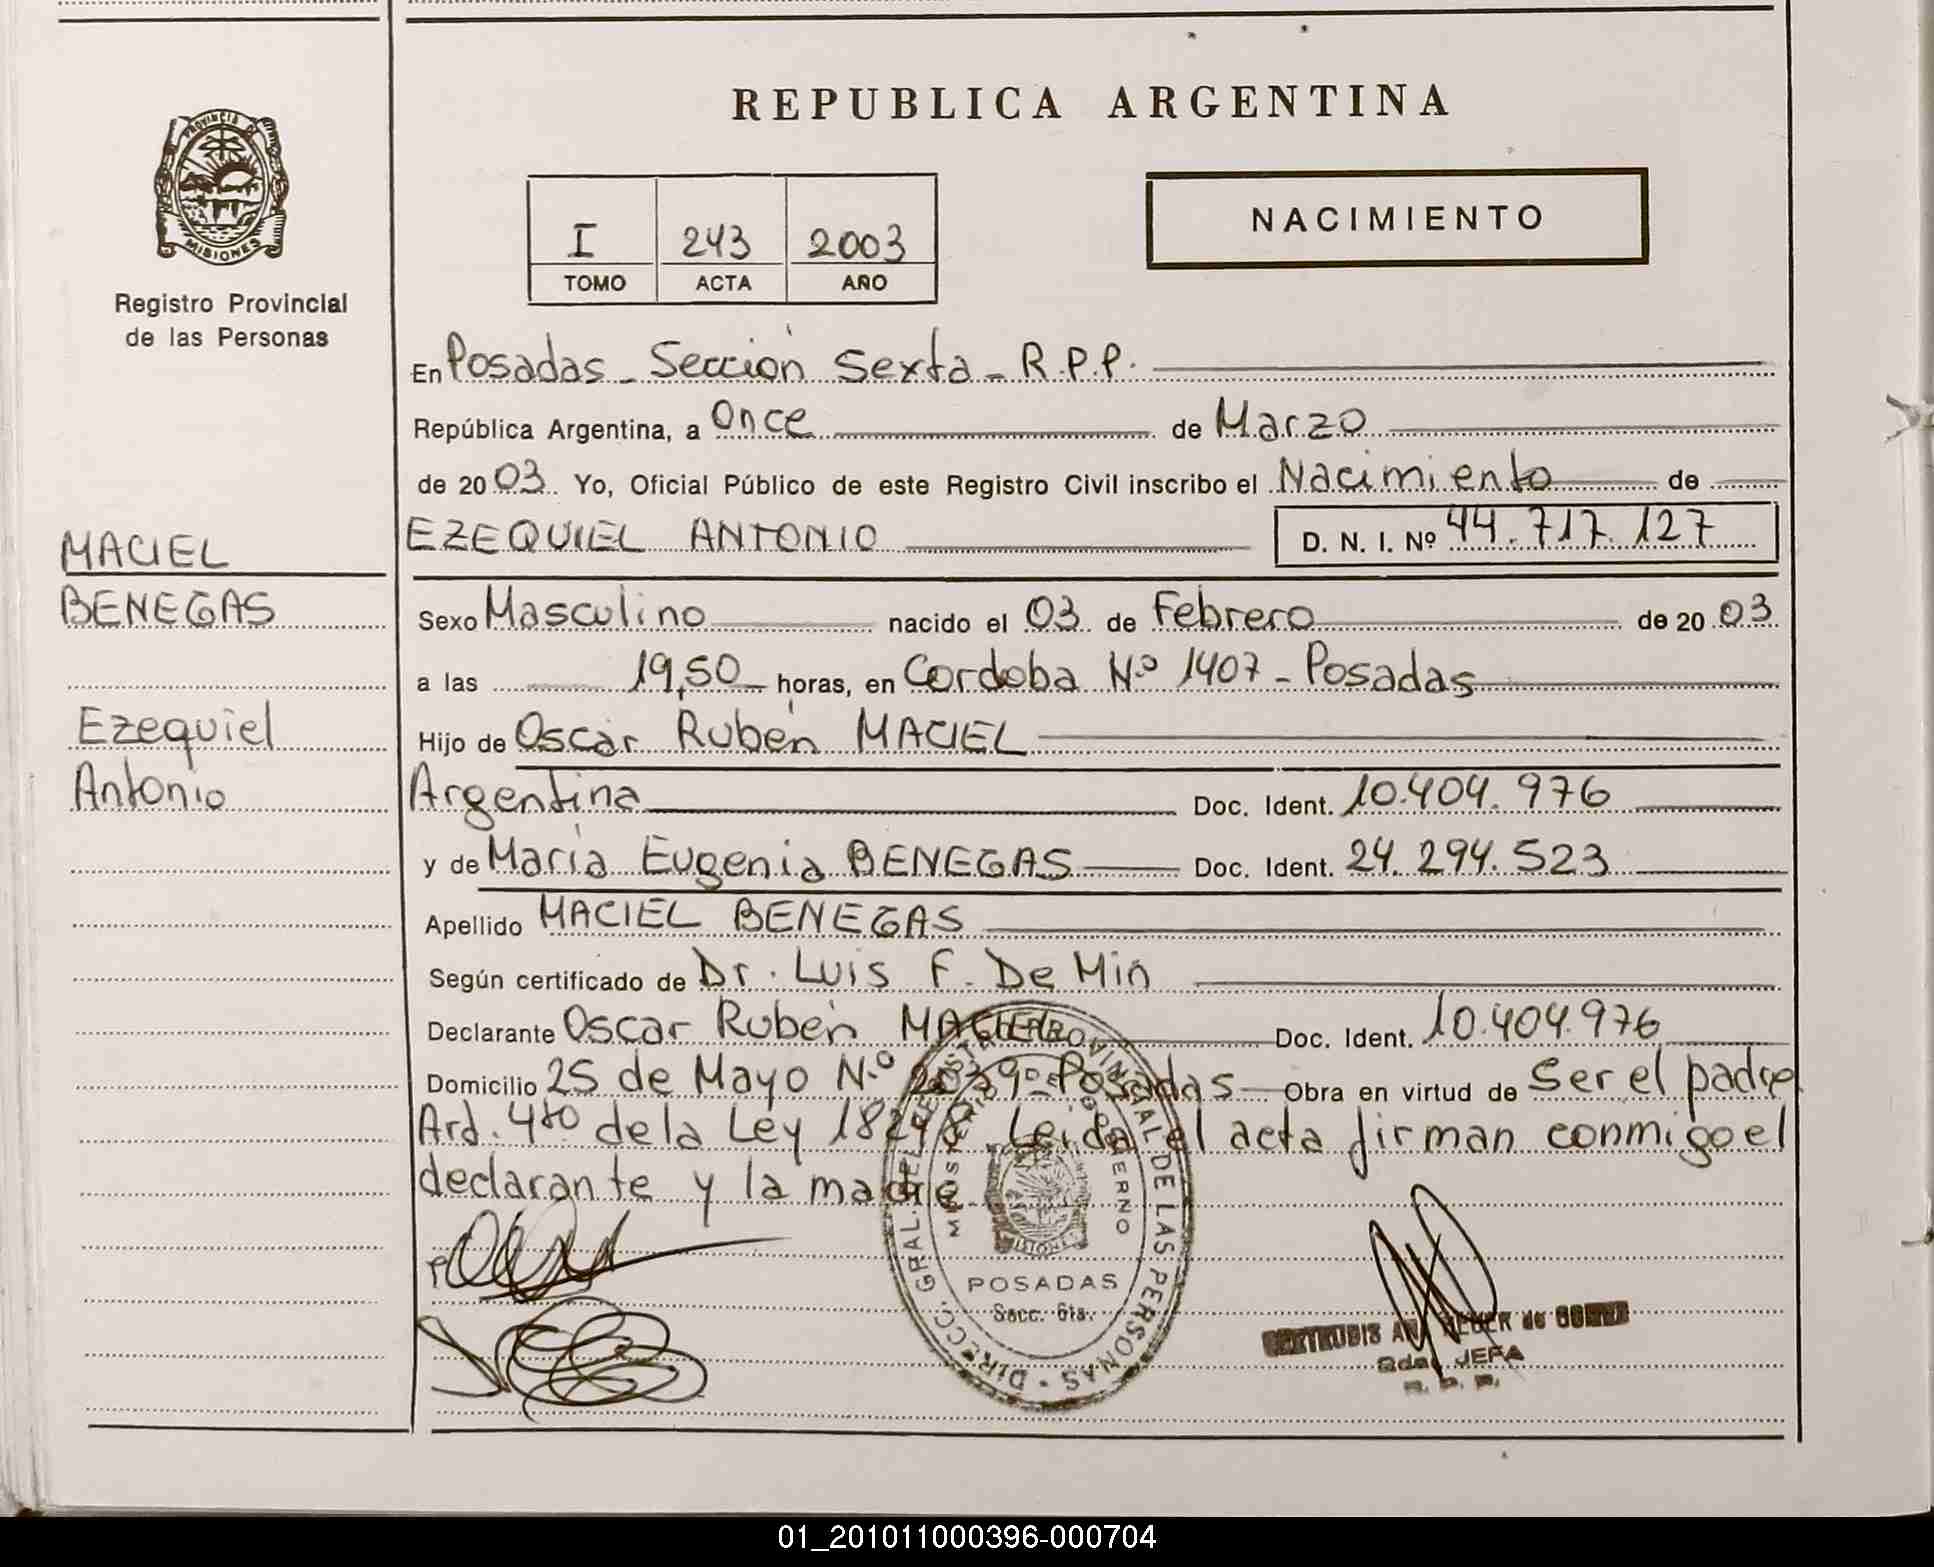 REPUBLICA ARGENTINA
PROVINCIA DE
MISIONES
Registro Provincial
de las Personas
I 243 2003
TOMO ACTA AÑO
NACIMIENTO
En Posadas - Sección Sexta - R.P.P.
República Argentina, a Once de Marzo
de 2003. Yo, Oficial Público de este Registro Civil inscribo el Nacimiento de
MACIEL
EZEQUIEL ANTONIO D. N. I. Nº 44.717.127
BENEGAS
Sexo Masculino nacido el 03 de Febrero de 2003
a las 19,50 horas, en Cordoba Nº 1407 - Posadas
Ezequiel
Hijo de Oscar Rubén MACIEL
Antonio
Argentina Doc. Ident. 10.404.976
y de María Eugenia BENEGAS Doc. Ident. 24.294.523
Apellido MACIEL BENEGAS
Según certificado de Dr. Luis F. De Min
Declarante Oscar Rubén MACIEL Doc. Ident. 10.404.976
Domicilio 25 de Mayo N.º Posadas Obra en virtud de Ser el padre
Art. 4to de la Ley 18248. Leida el acta firman conmigo el
declarante y la madre
DIRECC. GRAL. DEL REGISTRO PROVINCIAL DE LAS PERSONAS
MINISTERIO DE GOBIERNO
MISIONES
POSADAS
Secc. 6ta.
JEFA
R. P. P.
01_201011000396-000704